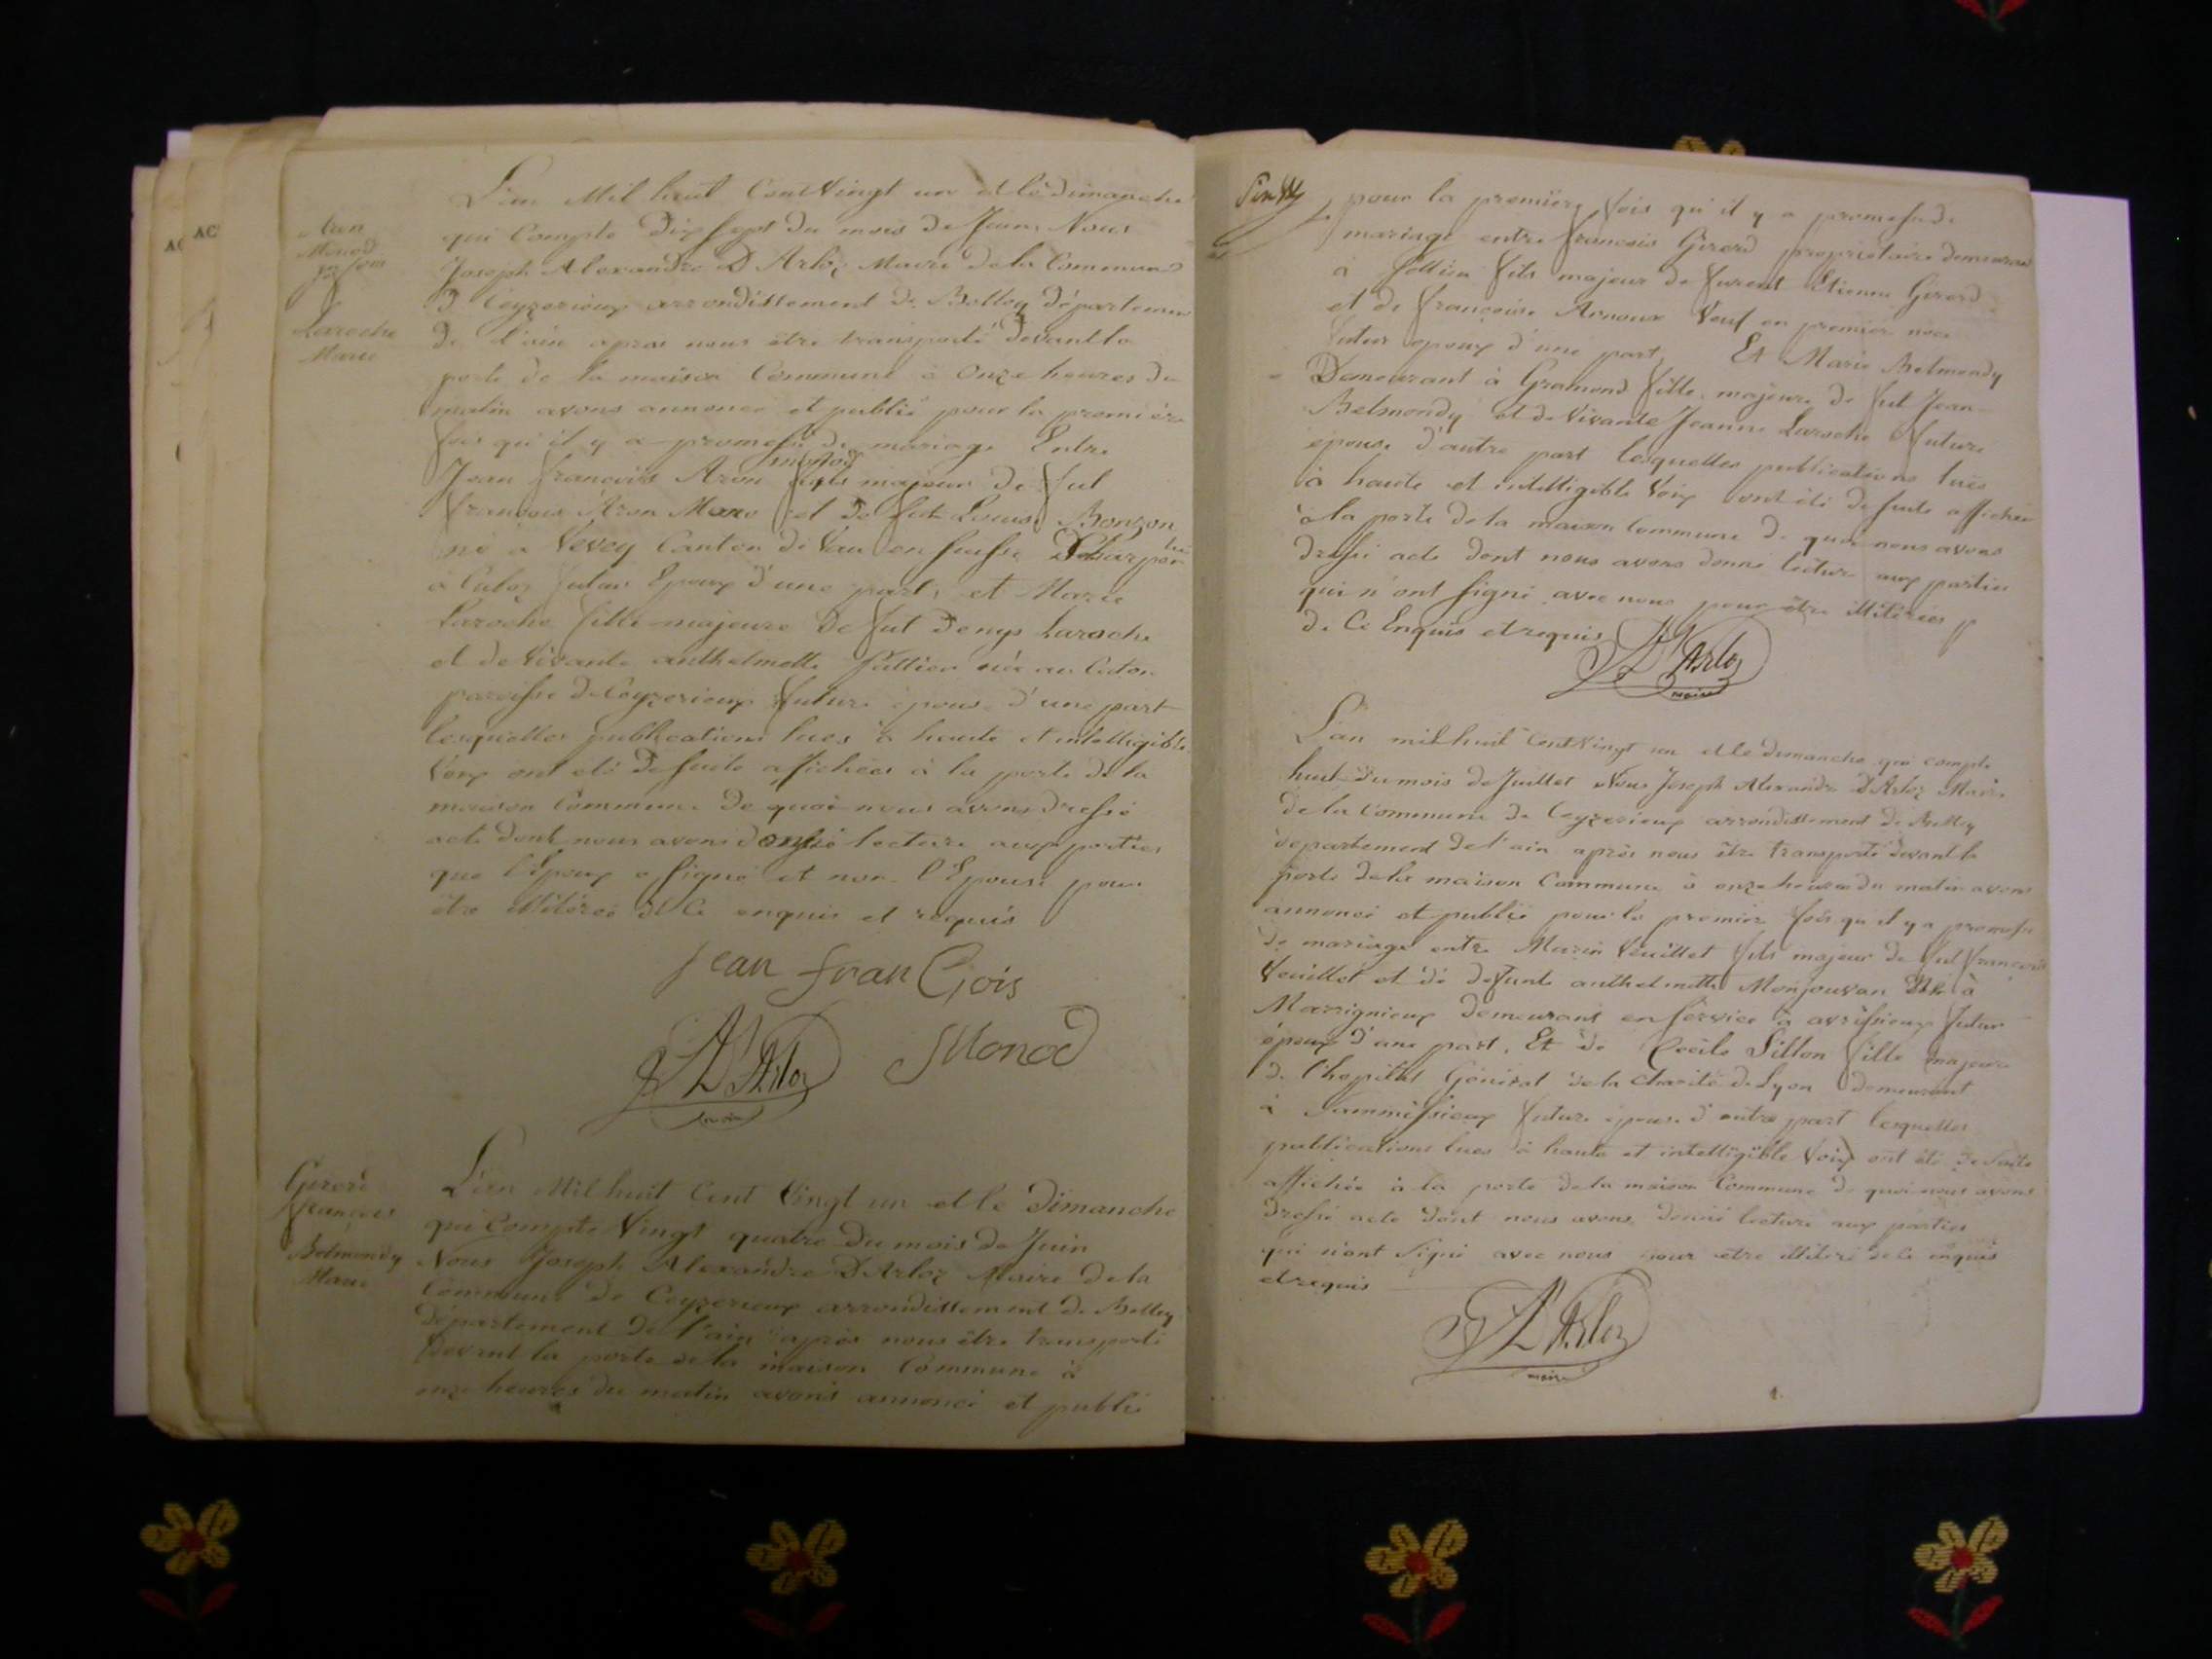 AC
AC
Aron
Monod
jn fois
Laroche
Marie
L'an Mil huit Cent Vingt un et le dimanche
qui Compte Dix sept du mois de Juin Nous
Joseph Alexandre D'Arloz Maire de la Commune
de Ceyzerieux arrondissement de Belley département
de l'ain apres nous être transporté devant la
porte de la maison Commune à Onze heures du
matin avons annoncé et publié pour la première
fois qu'il y a promesse de mariage Entre
monod
Jean françois Aron fils majeur de fut
francois Aron Mono et de fut Louise Bonzon
né à Vevey Canton de Vau en suisse
à Culoz futur Epoux d'une part, et Marie
Laroche fille majeure de fut Denys Laroche
et de Vivante anthelmette née au
paroisse de Ceyzerieux future épouse d'une part
lesquelles publications lues à haute et intelligible
Voix ont été de suite affichées à la porte de la
maison Commune de quoi nous avons dressé
acte dont nous avons donné lecture aux parties
que l'Epoux a signé et non l'Epouse pour
être illitéréé de ce enquis et requis
jean fran Cois
Monod
D'Arloz
maire
Gererd
françois
Belmondy
Marie
L'an Mil huit Cent Vingt un et le Dimanche
qui Compte Vingt quatre du mois de Juin
Nous Joseph Alexandre D'Arloz Maire de la
Commune de Ceyzerieux arrondissement de Belley
département de l'ain après nous être transporté
devant la porte de la maison Commune à
onze heures du matin avons annoncé et publié
pour la première fois qu'il y a promesse de
mariage entre francois Girerd propriétaire demeurant
à fils majeur de furent Etienne Girerd
et de françoise Arnoux Veuf en premier noce
futur epoux d'une part, Et Marie Belmondy
Demeurant à Gramond fille majeure de fut Jean
Belmondy et de Vivante Jeanne Laroche future
épouse d'autre part lesquelles publications lues
à haute et intelligible Voix ont été de suite affichée
à la porte de la maison Commune de quoi nous avons
dressé acte dont nous avons donné lecture aux parties
qui n'ont signé avec nous pour être illitérées
de Ce Enquis et requis
D'Arloz
maire
L'an mil huit Cent Vingt un et le dimanche qui compte
huit du mois de Juillet Nous Joseph Alexandre D'Arloz Maire
de la Commune de Ceyzerieux arrondissement de Belley
département de l'ain après nous être transporté devant la
porte de la maison Commune à onze heures du matin avons
annoncé et publié pour la premier fois qu'il y a promesse
de mariage entre Marin Veuillet fils majeur de fut françois
Veuillet et de defunte anthelmette Monjouvan né à
Marrignieux demeurant en service à avrissieux futur
époux d'une part, Et de Cecile Sillon fille majeure
de l'hopital Général de la charité de Lyon demeurant
à Vammissieux future épouse d'autre part lesquelles
publications lues à haute et intelligible Voix ont été de suite
affichée à la porte de la maison Commune de quoi nous avons
dressé acte dont nous avons donné lecture aux parties
qui n'ont signé avec nous pour etre illitéré de ce enquis
et requis
D'Arloz
maire